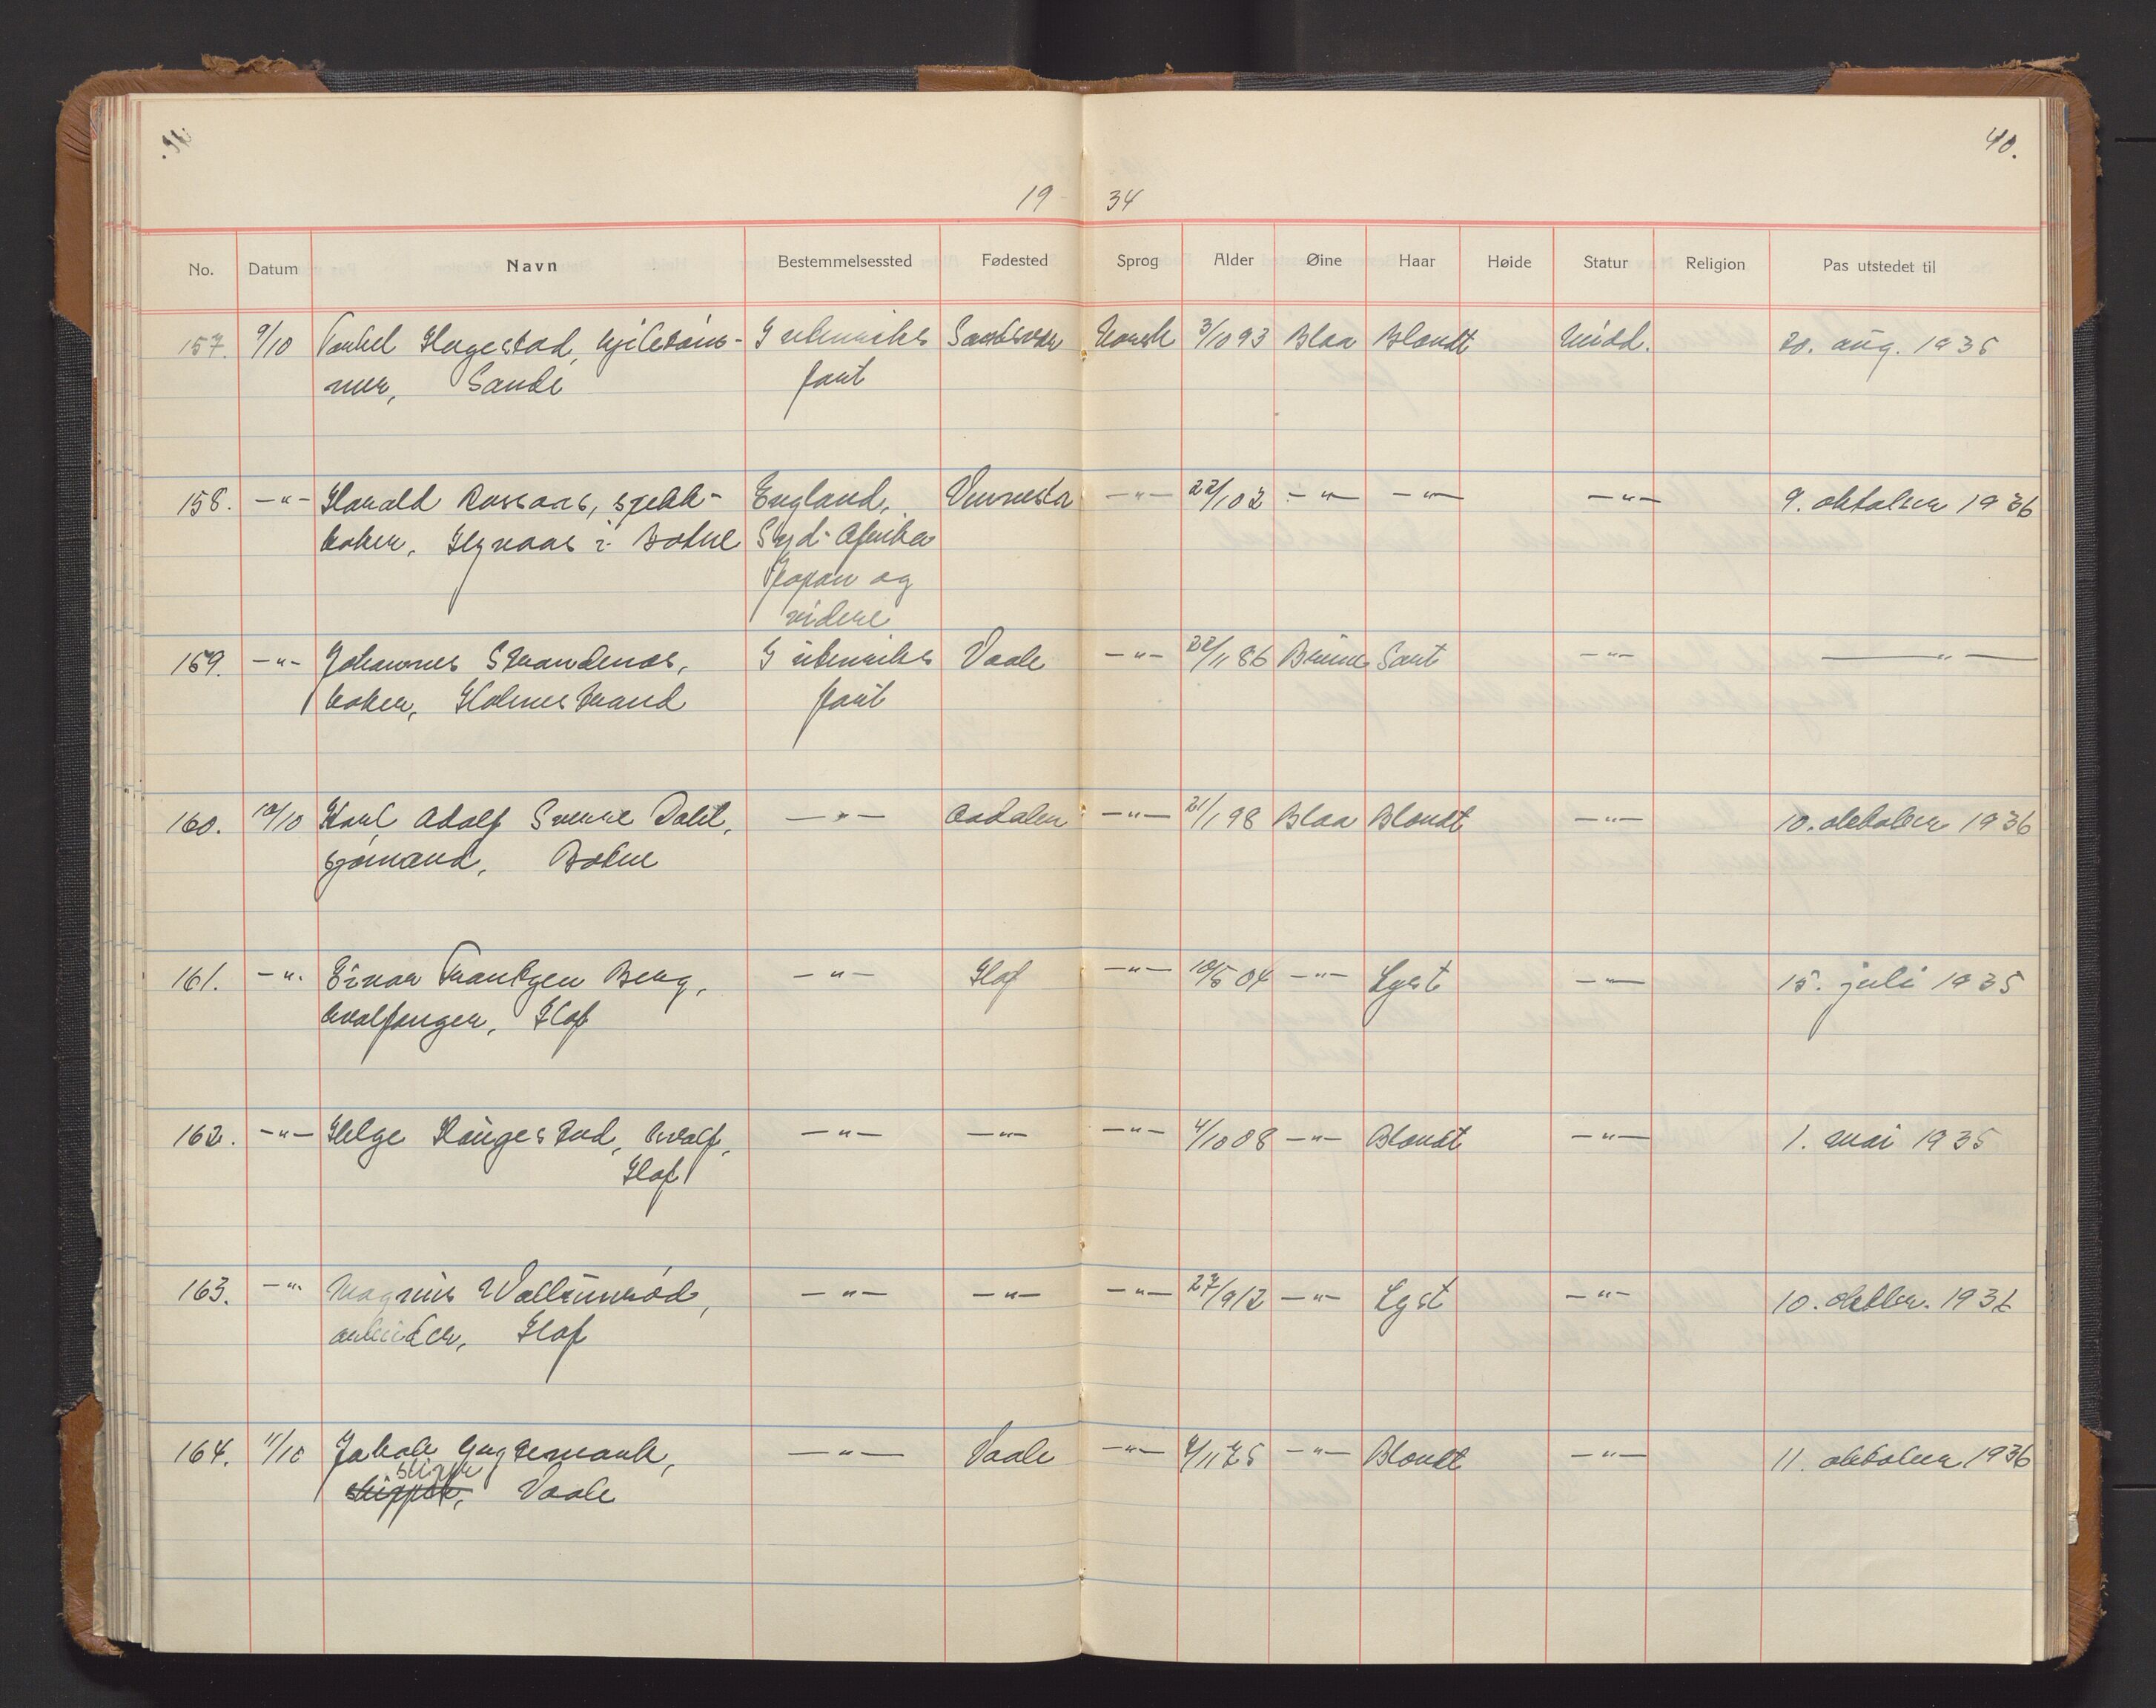 40.
19 34
No. Datum Navn Bestemmelsessted Fødested Sprog Alder Øine Haar Høide Statur Religion Pas utstedet til
157. 9/10 Torkel Hagestad, hjeletöm- I utenriks Sandsvær Norsk 3/10 93 Blaa Blondt Midd. 20. aug. 1935
mer, Sande fart
158. -"- Harald Rossaas, spekk- England, Vennesla -"- 22/1 02 -"- -"- -"- 9. oktober 1936
koker, Hynaas i Botne Syd-Afrika
Japan og
videre
159. -"- Johannes Strandenas, I utenriks Vaale -"- 22/11 86 Brune Sort -"- -"-
koker, Holmestrand fart
160. 10/10 Karl Adolf Sverre Dahl, -"- Aadalen -"- 21/1 98 Blaa Blondt -"- 10. oktober 1936
sjømand, Botne
161. -"- Einar Frantzen Berg, -"- Hof -"- 10/5 04 -"- Lyst -"- 15. juli 1935
hvalfanger, Hof
162. -"- Helge Haugestad, hvalf, -"- -"- -"- 4/10 08 -"- Blondt -"- 1. mai 1935
Hof
163. -"- Magnus Wallumrød, -"- -"- -"- 27/9 12 -"- Lyst -"- 10. oktbr. 1936
arbeider, Hof
164. 11/10 Jakob -"- Vaale -"- -"- Blondt -"- 11. oktober 1936
Vaale